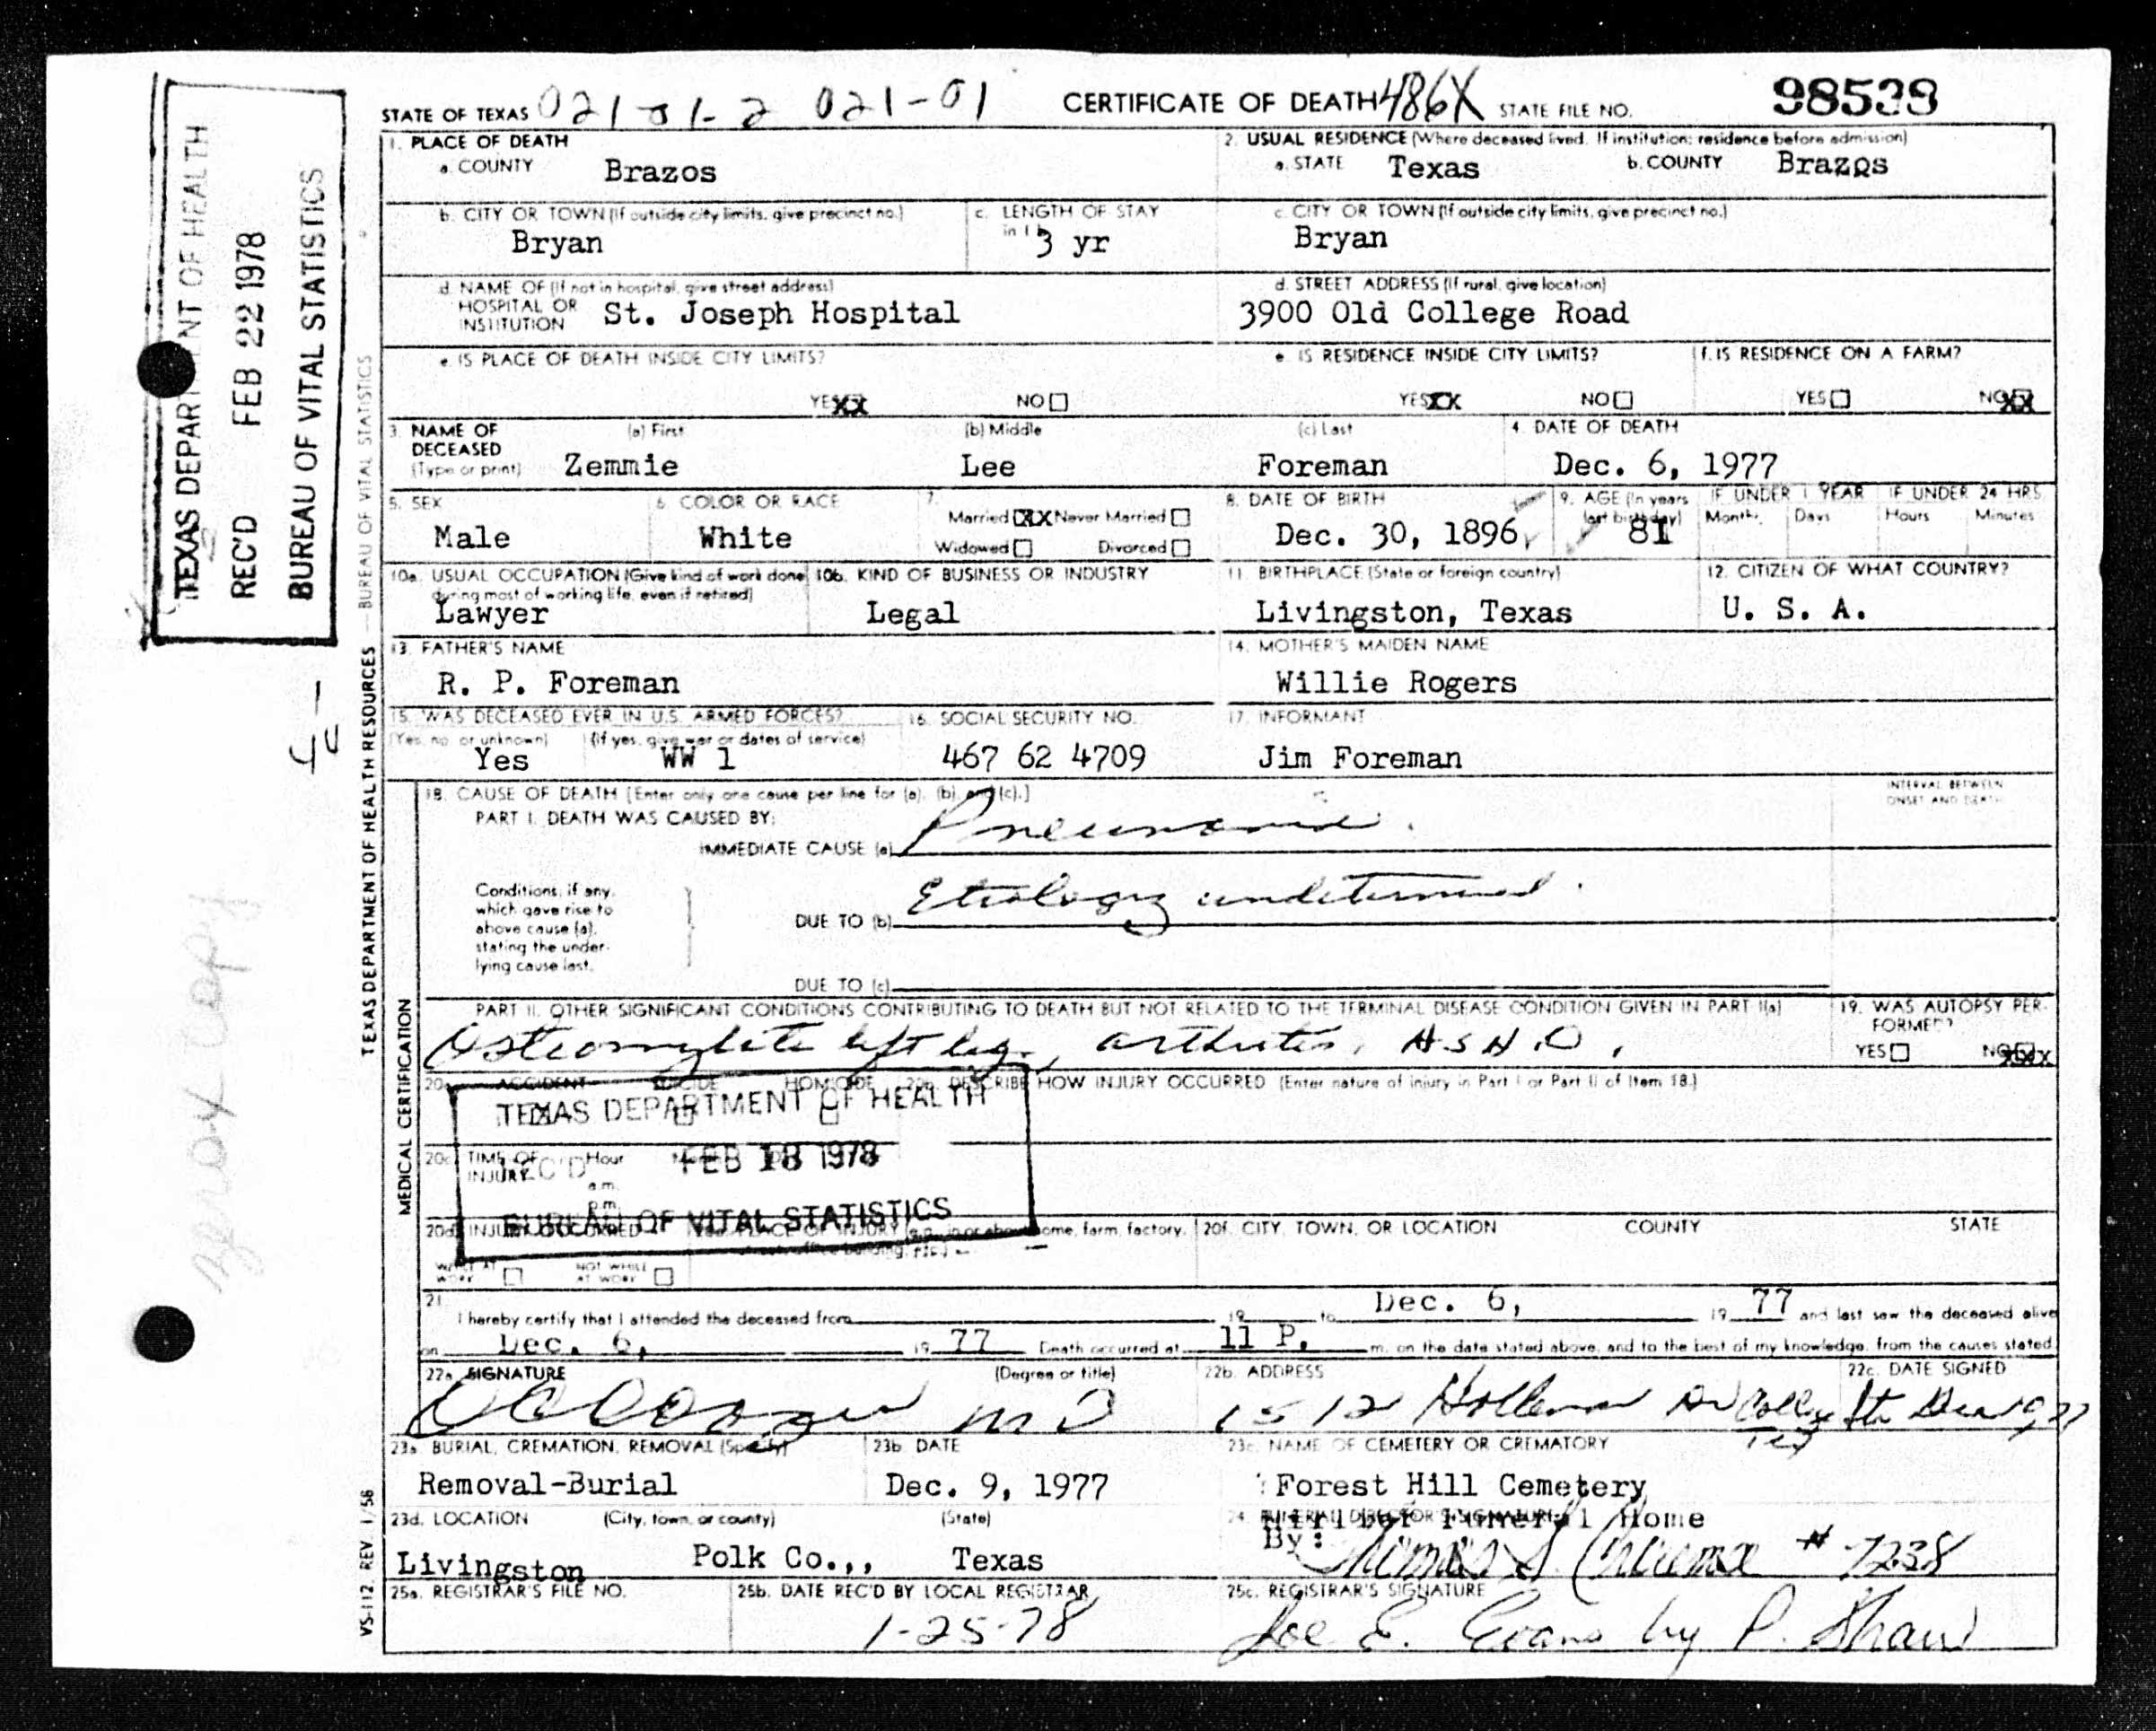 TEXAS DEPARTMENT OF HEALTH
REC'D FEB 22 1978
BUREAU OF VITAL STATISTICS
xerox copy
TEXAS DEPARTMENT OF HEALTH RESOURCES — BUREAU OF VITAL STATISTICS
VS-112 REV. 1/58
STATE OF TEXAS 021-01-2 021-01 CERTIFICATE OF DEATH 486X STATE FILE NO. 98538
1. PLACE OF DEATH
a. COUNTY Brazos
2. USUAL RESIDENCE (Where deceased lived. If institution: residence before admission)
a. STATE Texas b. COUNTY Brazos
b. CITY OR TOWN (If outside city limits, give precinct no.)
Bryan
c. LENGTH OF STAY
in 1 b 3 yr
c. CITY OR TOWN (If outside city limits, give precinct no.)
Bryan
d. NAME OF (If not in hospital, give street address)
HOSPITAL OR
INSTITUTION St. Joseph Hospital
d. STREET ADDRESS (If rural, give location)
3900 Old College Road
e. IS PLACE OF DEATH INSIDE CITY LIMITS?
YES XX NO
e. IS RESIDENCE INSIDE CITY LIMITS?
YES XX NO
f. IS RESIDENCE ON A FARM?
YES NO XX
3. NAME OF
DECEASED
(Type or print)
(a) First (b) Middle (c) Last
Zemmie Lee Foreman
4. DATE OF DEATH
Dec. 6, 1977
5. SEX
Male
6. COLOR OR RACE
White
7.
Married XX Never Married
Widowed Divorced
8. DATE OF BIRTH
Dec. 30, 1896
9. AGE (In years
last birthday) 81
IF UNDER 1 YEAR
Months Days
IF UNDER 24 HRS
Hours Minutes
10a. USUAL OCCUPATION (Give kind of work done
during most of working life, even if retired)
Lawyer
10b. KIND OF BUSINESS OR INDUSTRY
Legal
11. BIRTHPLACE (State or foreign country)
Livingston, Texas
12. CITIZEN OF WHAT COUNTRY?
U. S. A.
13. FATHER'S NAME
R. P. Foreman
14. MOTHER'S MAIDEN NAME
Willie Rogers
15. WAS DECEASED EVER IN U.S. ARMED FORCES?
(Yes, no, or unknown) (If yes, give war or dates of service)
Yes WW 1
16. SOCIAL SECURITY NO.
467 62 4709
17. INFORMANT
Jim Foreman
MEDICAL CERTIFICATION
18. CAUSE OF DEATH [Enter only one cause per line for (a), (b), and (c).]
INTERVAL BETWEEN
ONSET AND DEATH
PART I. DEATH WAS CAUSED BY:
IMMEDIATE CAUSE (a) Pneumonia.
Conditions, if any,
which gave rise to
above cause (a),
stating the under-
lying cause last.
DUE TO (b) Etiology undetermined.
DUE TO (c)
PART II. OTHER SIGNIFICANT CONDITIONS CONTRIBUTING TO DEATH BUT NOT RELATED TO THE TERMINAL DISEASE CONDITION GIVEN IN PART I(a)
left leg, arthritis, A S H D,
19. WAS AUTOPSY PER-
FORMED?
YES NO XXX
20a. ACCIDENT SUICIDE HOMICIDE
20b. DESCRIBE HOW INJURY OCCURRED (Enter nature of injury in Part I or Part II of Item 18.)
TEXAS DEPARTMENT OF HEALTH
REC'D FEB 18 1978
BUREAU OF VITAL STATISTICS
20c. TIME OF
INJURY
Hour
a.m.
p.m.
20d. INJURY OCCURRED
WHILE AT
WORK
NOT WHILE
AT WORK
20e. PLACE OF INJURY (e.g., in or about home, farm, factory,
street, office building, etc.)
20f. CITY, TOWN, OR LOCATION COUNTY STATE
21.
I hereby certify that I attended the deceased from 19 to Dec. 6, 19 77 and last saw the deceased alive
on Dec. 6, 19 77 Death occurred at 11 P. m. on the date stated above, and to the best of my knowledge, from the causes stated.
22a. SIGNATURE (Degree or title)
M D
22b. ADDRESS
1512 Holleman
Tex
22c. DATE SIGNED
23a. BURIAL, CREMATION, REMOVAL (Specify)
Removal-Burial
23b. DATE
Dec. 9, 1977
23c. NAME OF CEMETERY OR CREMATORY
Forest Hill Cemetery
23d. LOCATION (City, town, or county) (State)
Livingston Polk Co.,, Texas
24. FUNERAL DIRECTOR'S SIGNATURE
Funeral Home
By: Thomas # 7238
25a. REGISTRAR'S FILE NO.
25b. DATE REC'D BY LOCAL REGISTRAR
1-25-78
25c. REGISTRAR'S SIGNATURE
Joe E. Evans by P. Shaw